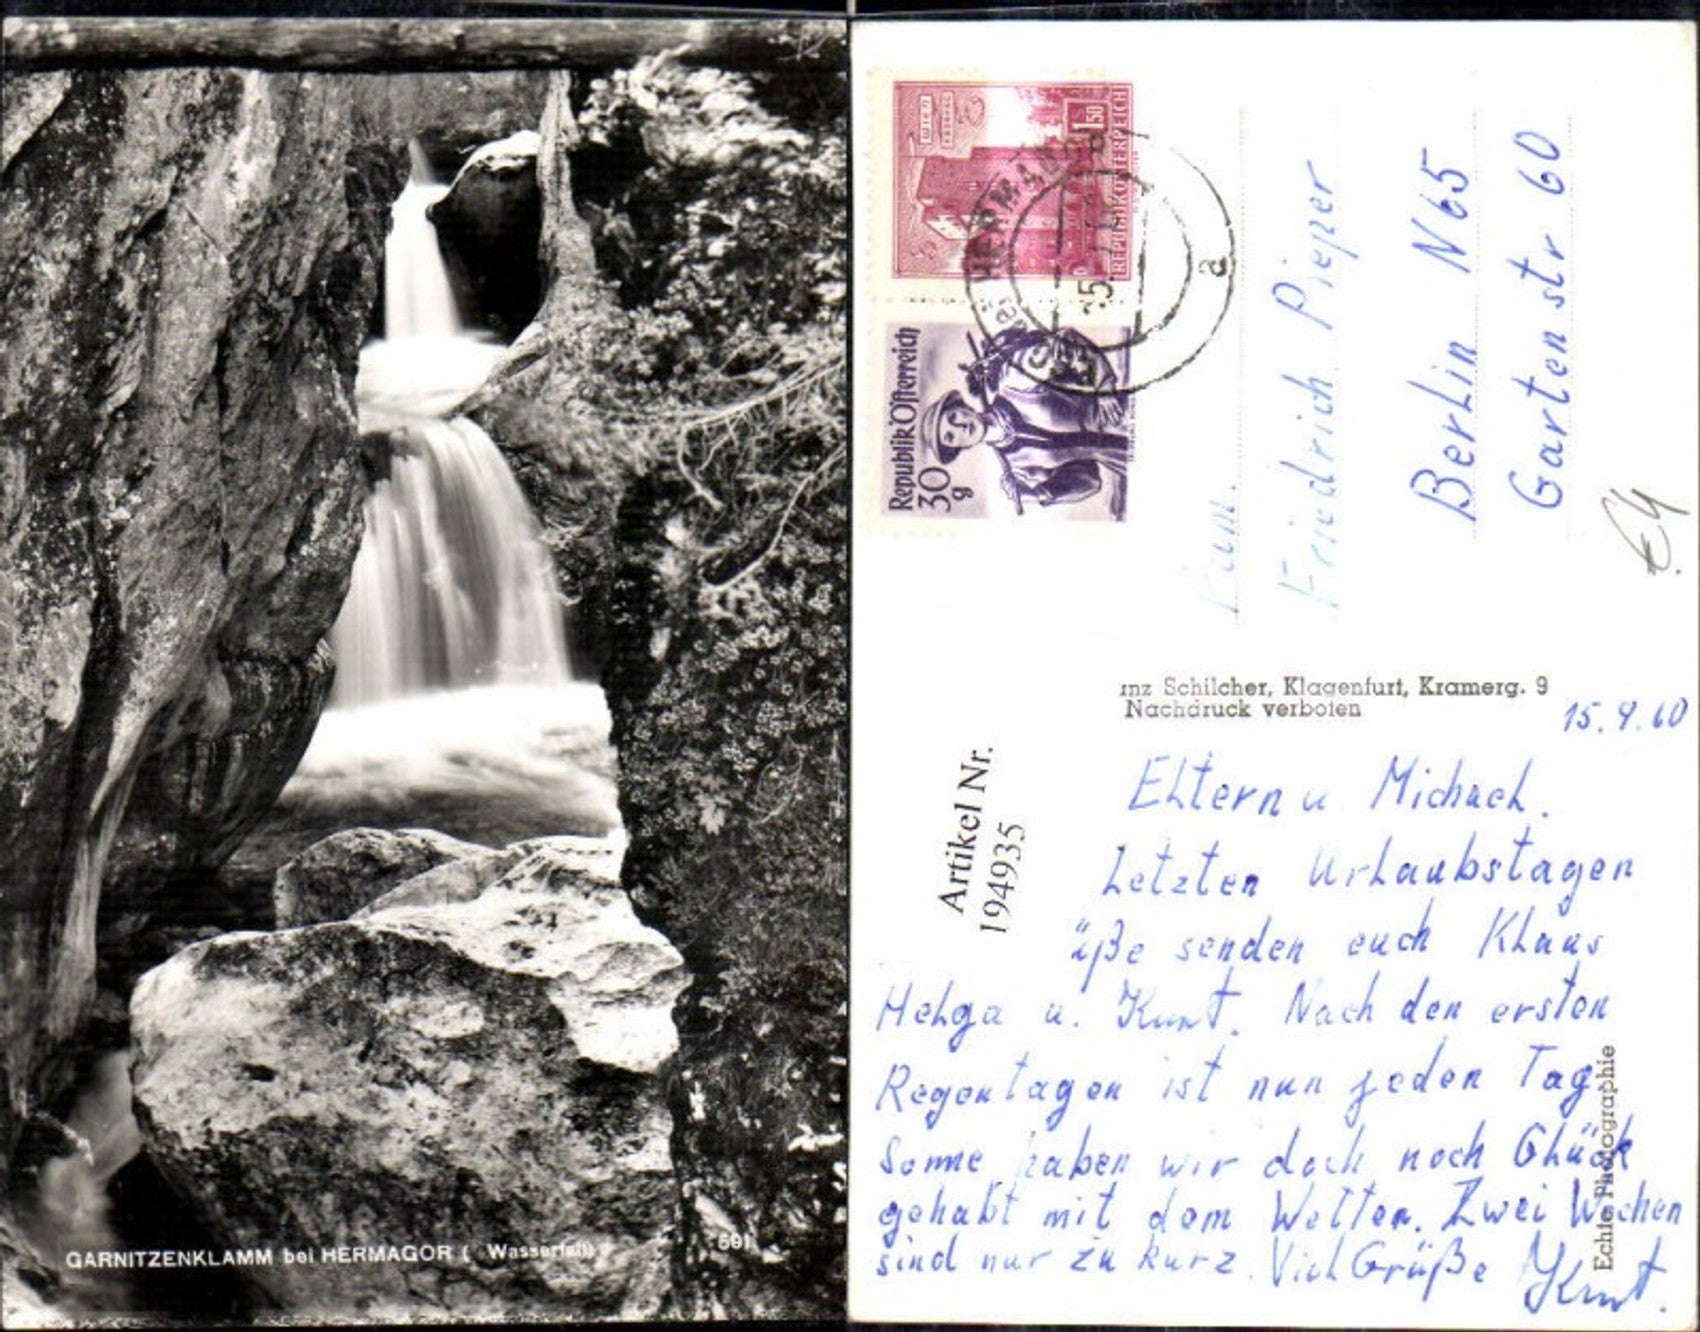 GARNITZENKLAMM bei HERMAGOR ( Wasserfall)
591
WIEN
1.50
REPUBLIK ÖSTERREICH
Republik Österreich
30
g
HERMAGOR
a
Fam.
Friedrich Pieper
Berlin N65
Gartenstr 60
€4
nz Schilcher, Klagenfurt, Kramerg. 9
Nachdruck verboten
15.9.60
Artikel Nr.
194935
Eltern u Michael.
Letzten Urlaubstagen
üße senden euch Klaus
Helga u. Kurt. Nach den ersten
Regentagen ist nun jeden Tag
Sonne haben wir doch noch Glück
gehabt mit dem Wetter. Zwei Wochen
sind nur zu kurz. Viel Grüße Kurt.
Echte Photographie